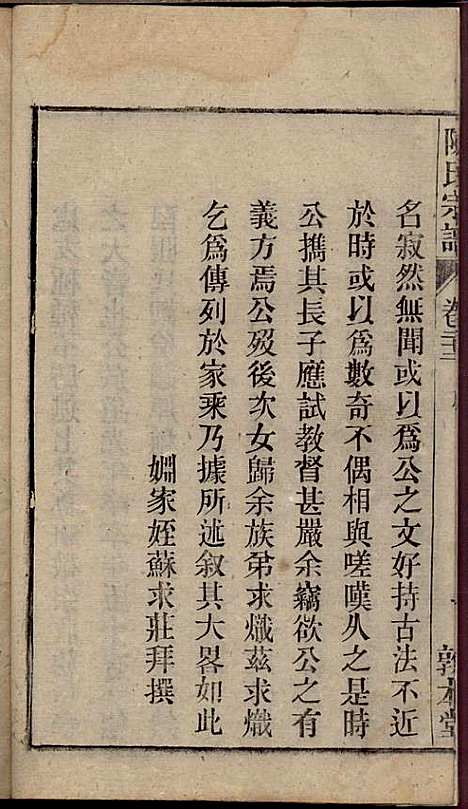 陳氏宗譜
卷三
敦本堂
名寂然無聞或以為公之文好持古法不近
於時或以為數奇不偶相與嗟嘆久之是時
公攜其長子應試教督甚嚴余竊欲公之有
義方焉公歿後次女歸余族弟求熾茲求熾
乞為傳列於家乘乃據所述叙其大畧如此
姻家姪蘇求莊拜撰